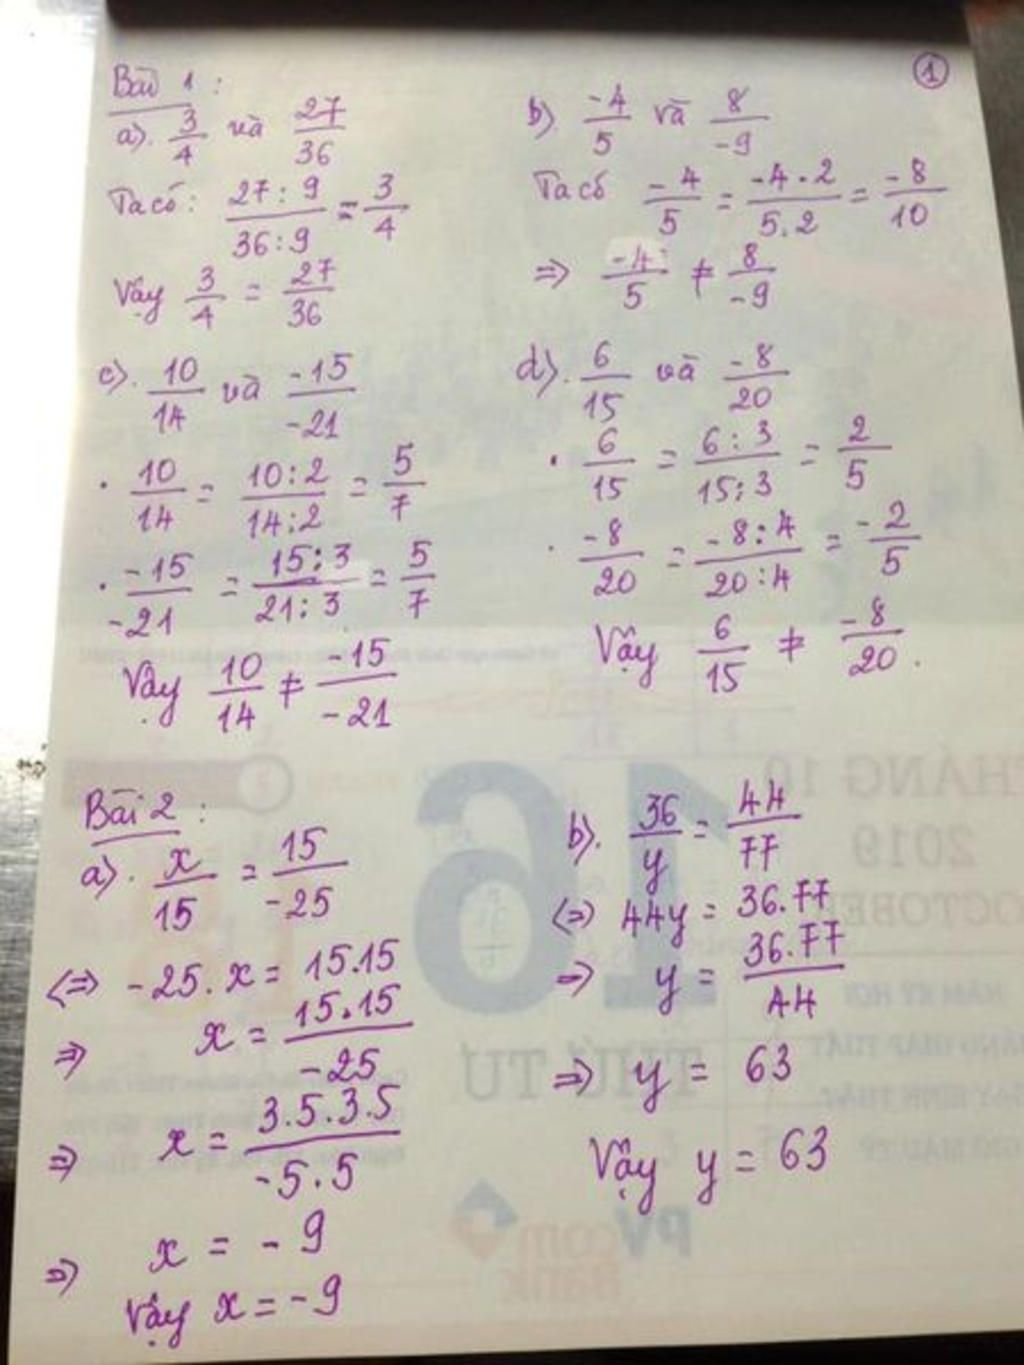 1
Bài 1 :
a). 3/4 và 27/36
Ta có : 27 : 9 / 36 : 9 = 3/4
Vậy 3/4 = 27/36
b). -4/5 và 8/-9
Ta có -4/5 = -4 . 2 / 5 . 2 = -8/10
=> -4/5 ≠ 8/-9
c). 10/14 và -15/-21
. 10/14 = 10 : 2 / 14 : 2 = 5/7
. -15/-21 = 15 : 3 / 21 : 3 = 5/7
Vậy 10/14 ≠ -15/-21
d). 6/15 và -8/20
. 6/15 = 6 : 3 / 15 : 3 = 2/5
. -8/20 = -8 : 4 / 20 : 4 = -2/5
Vậy 6/15 ≠ -8/20 .
Bài 2 :
a). x/15 = 15/-25
<=> -25 . x = 15.15
=> x = 15.15/-25
=> x = 3.5.3.5/-5.5
=> x = -9
Vậy x = -9
b). 36/y = 44/77
<=> 44y = 36.77
=> y = 36.77/44
=> y = 63
Vậy y = 63
THÁNG 10
2019
OCTOBER
16
THỨ TƯ
PVcom
Bank